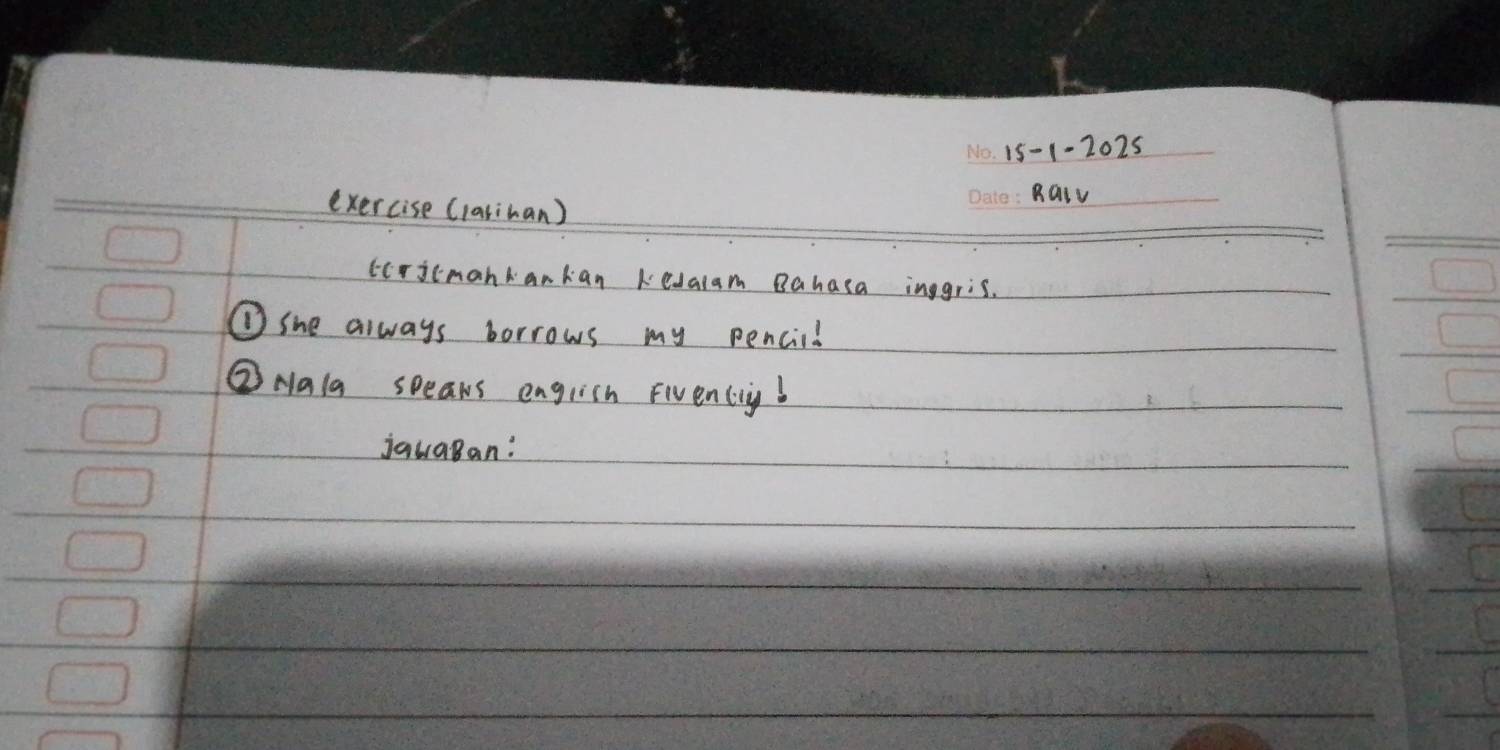 No. 15-1-2025
Date: Rabu
exercise (latihan)
terjemahkankan kedalam Bahasa inggris.
① she always borrows my pencil!
② Nala speaks english Fluently!
jawaban: